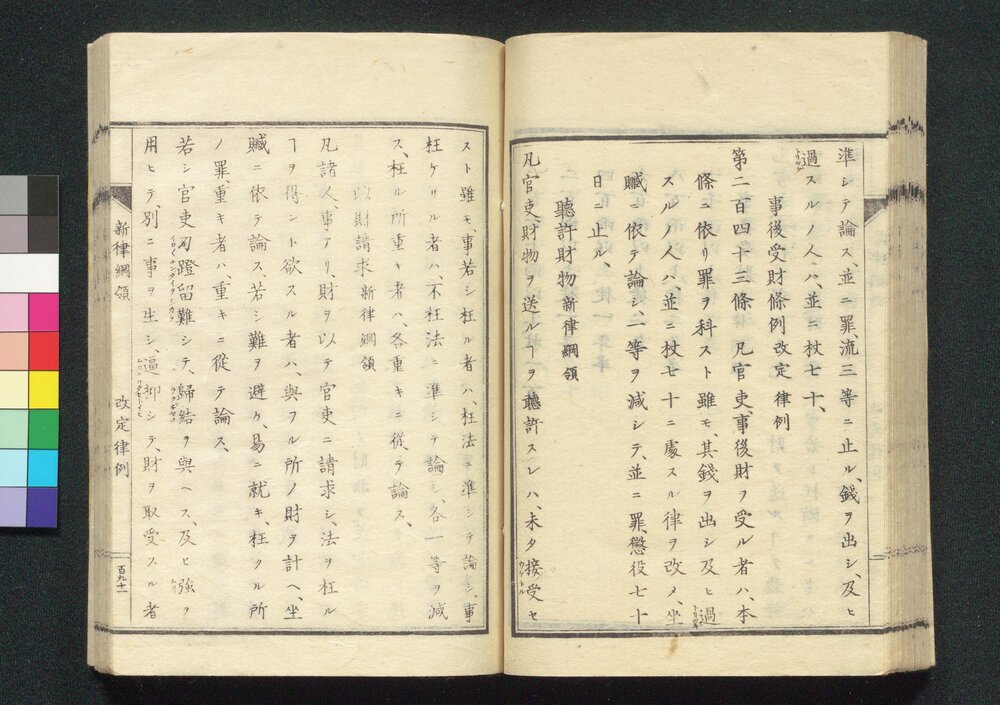 準シテ論ス、並ニ罪、流三等ニ止ル、錢ヲ出シ、及ヒ
過スルノ人ハ、並ニ杖七十、
事後受財條例改定律例
第二百四十三條 凡官吏、事後財ヲ受ル者ハ、本
條ニ依リ罪ヲ科スト雖モ、其錢ヲ出シ及ヒ過
スルノ人ハ、並ニ杖七十ニ處スル律ヲ改メ、坐
贓ニ依テ論シ、二等ヲ減シテ、並ニ罪、懲役七十
日ニ止ル、
聽許財物新律綱領
凡官吏、財物ヲ送ルヿヲ聽許スレハ、未タ接受セ
スト雖モ、事若シ枉ル者ハ、枉法ニ準シテ論シ、事
枉ケサル者ハ、不枉法ニ準シテ論シ、各一等ヲ減
ス、枉ル所重キ者ハ、各重キニ從テ論ス、
以財請求新律綱領
凡諸人、事アリ、財ヲ以テ官吏ニ請求シ、法ヲ枉ル
ヿヲ得ント欲スル者ハ、與フル所ノ財ヲ計ヘ、坐
贓ニ依テ論ス、若シ難ヲ避ケ、易ニ就キ、枉クル所
ノ罪、重キ者ハ、重キニ從テ論ス、
若シ官吏刁蹬留難シテ、歸結ヲ與ヘス、及ヒ強ヲ
用ヒテ、別ニ事ヲ生シ、逼抑シテ、財ヲ取受スル者
新律綱領 改定律例 百九十一